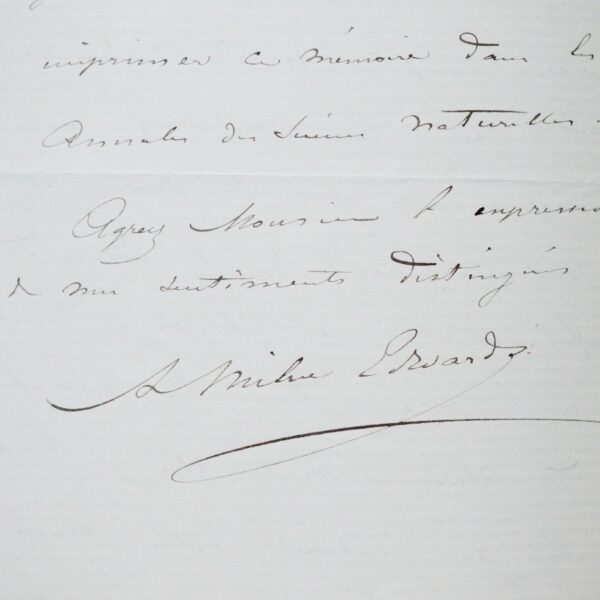 imprimer ce mémoire dans les
Annales des Sciences Naturelles.
Agréez Monsieur l'expression
de mes sentiments distingués
A Milne Edwards